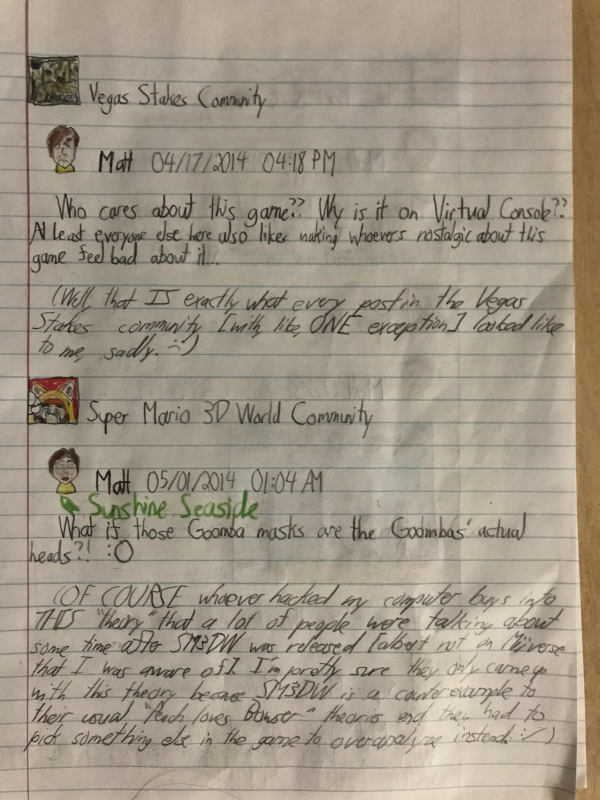 Vegas Stakes Community
Matt 04/17/2014 04:18 PM
Who cares about this game?? Wy is it on Virtual Console??
At least everyone else here also likes making whoever's nostalgic about this
game feel bad about it...
(Well, that IS exactly what every post in the Vegas
Stakes community [with, like, ONE exception] looked like
to me, sadly. :-/)
Super Mario 3D World Community
Matt 05/01/2014 01:04 AM
Sunshine Seaside
What if those Goomba masks are the Goombas' actual
heads?! :O
(OF COURSE whoever hacked my computer buys into
THIS "theory" that a lot of people were talking about
some time after SM3DW was released [albeit not on Miiverse
that I was aware of]. I'm pretty sure they only came up
with this theory because SM3DW is a counterexample to
their usual "Peach loves Bowser" theories and they had to
pick something else in the game to overanalyze instead. :-/)